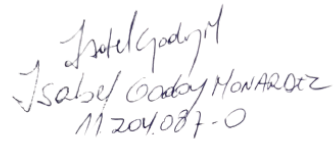 Isabel Godoy M
Isabel Godoy MONARDEZ
11204.087-0